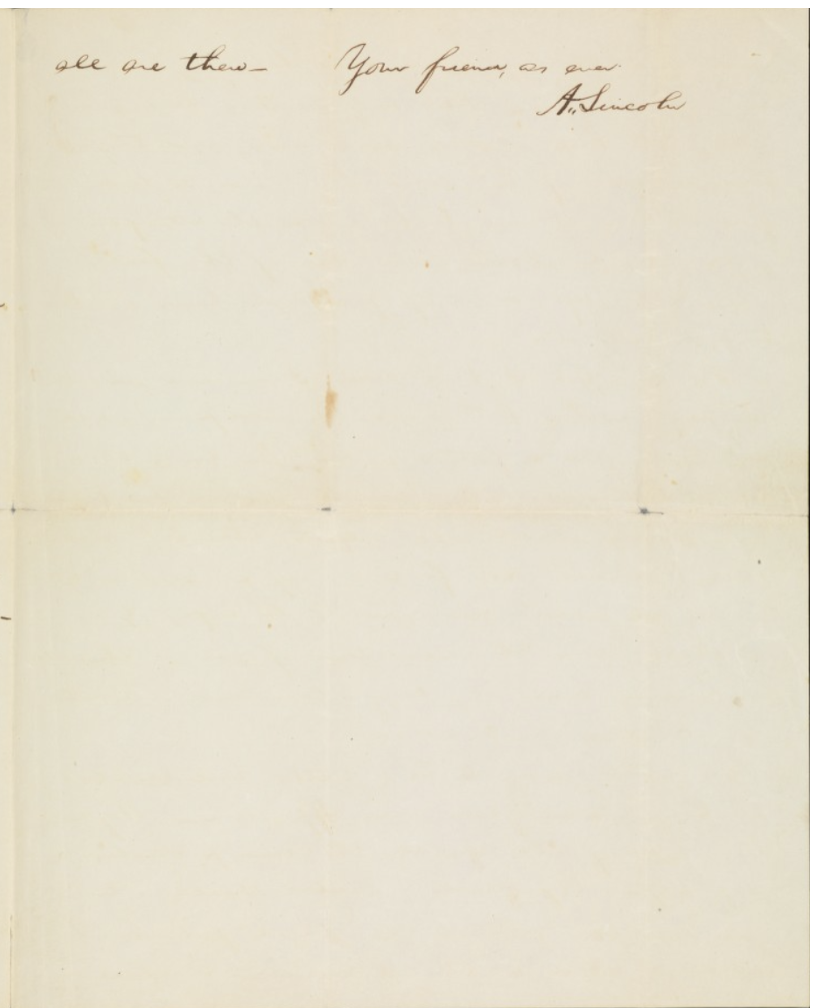 all are there— Your friend, as ever
A. Lincoln